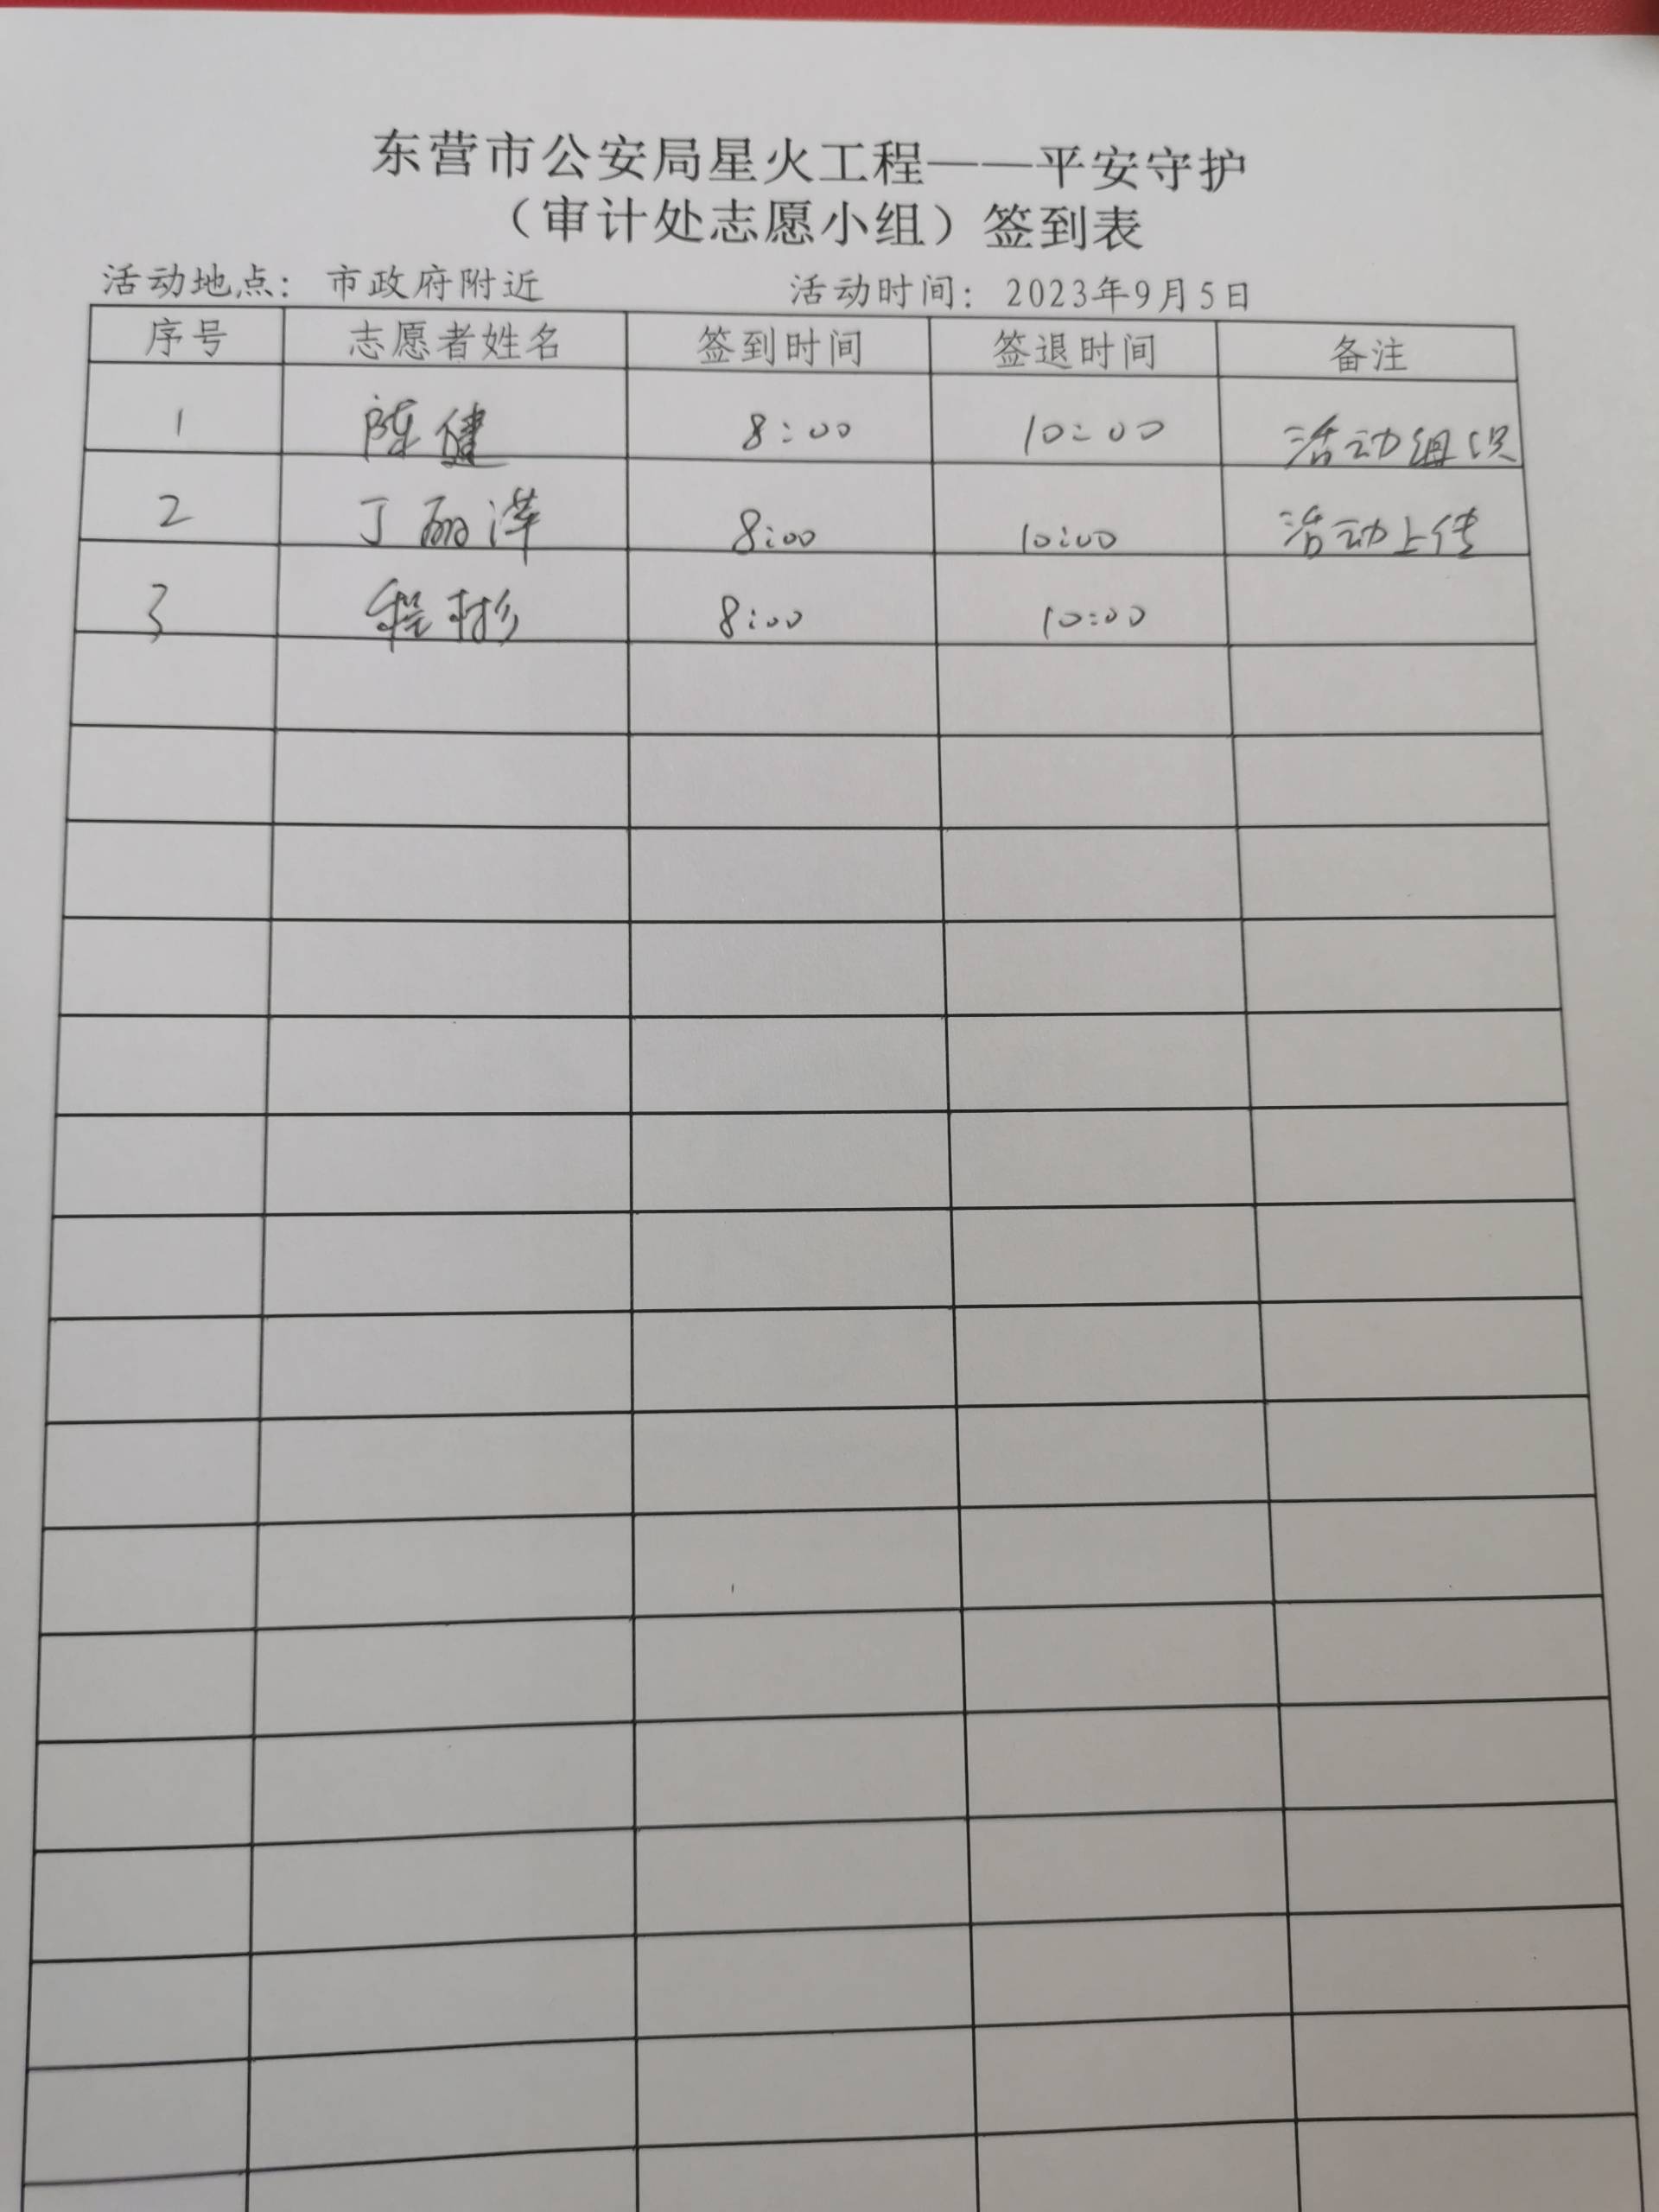 东营市公安局星火工程——平安守护
（审计处志愿小组）签到表
活动地点：市政府附近 活动时间：2023年9月5日
序号 志愿者姓名 签到时间 签退时间 备注
1 陈健 8:00 10:00 活动组织
2 丁丽萍 8:00 10:00 活动上传
3 程彬 8:00 10:00